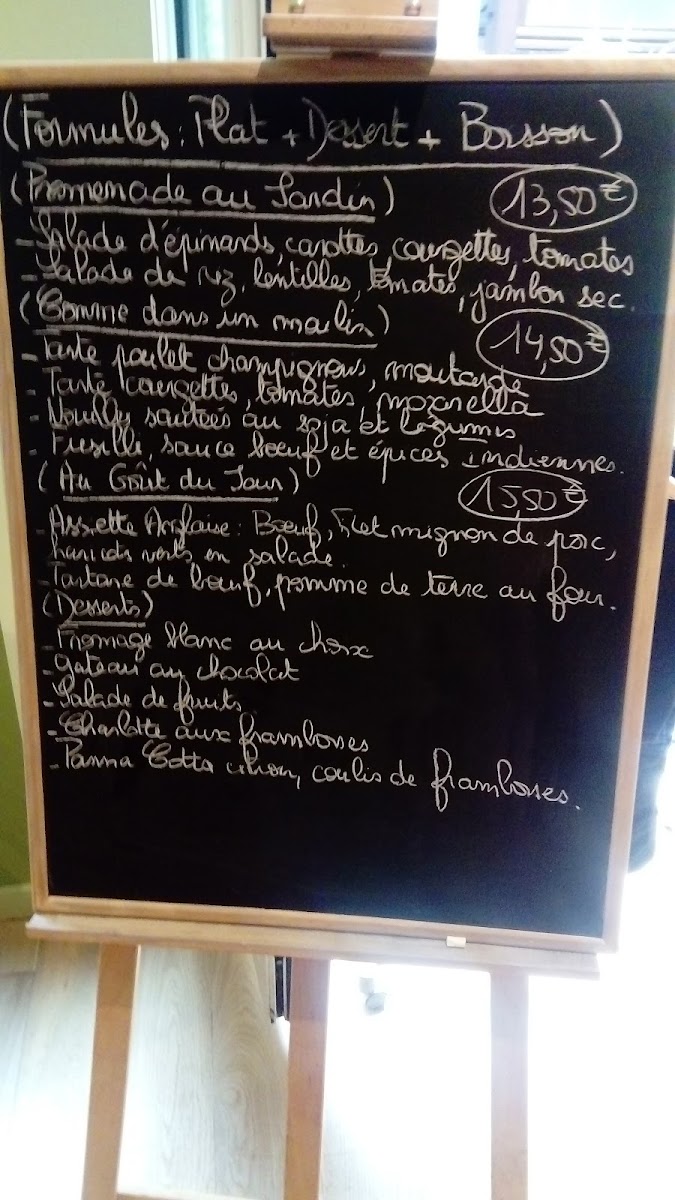 (Formules : Plat + Dessert + Boisson)
(Promenade au Jardin) 13,50€
- Salade d'épinards, carottes, courgettes, tomates
- Salade de riz, lentilles, tomates, jambon sec.
(Comme dans un moulin) 14,50€
- Tarte poulet champignons, moutarde
- Tarte courgettes, tomates, mozarella
- Nouilles sautées au soja et légumes
- Fusilli, sauce boeuf et épices Indiennes.
(Au Goût du Jour) 15,50€
- Assiette Anglaise : Boeuf, Filet mignon de porc,
haricots verts en salade.
- Tartare de boeuf, pomme de terre au four.
(Desserts)
- Fromage blanc au choix
- gateau au chocolat
- Salade de fruits
- Charlotte aux framboises
- Panna Cotta citron, coulis de framboises.